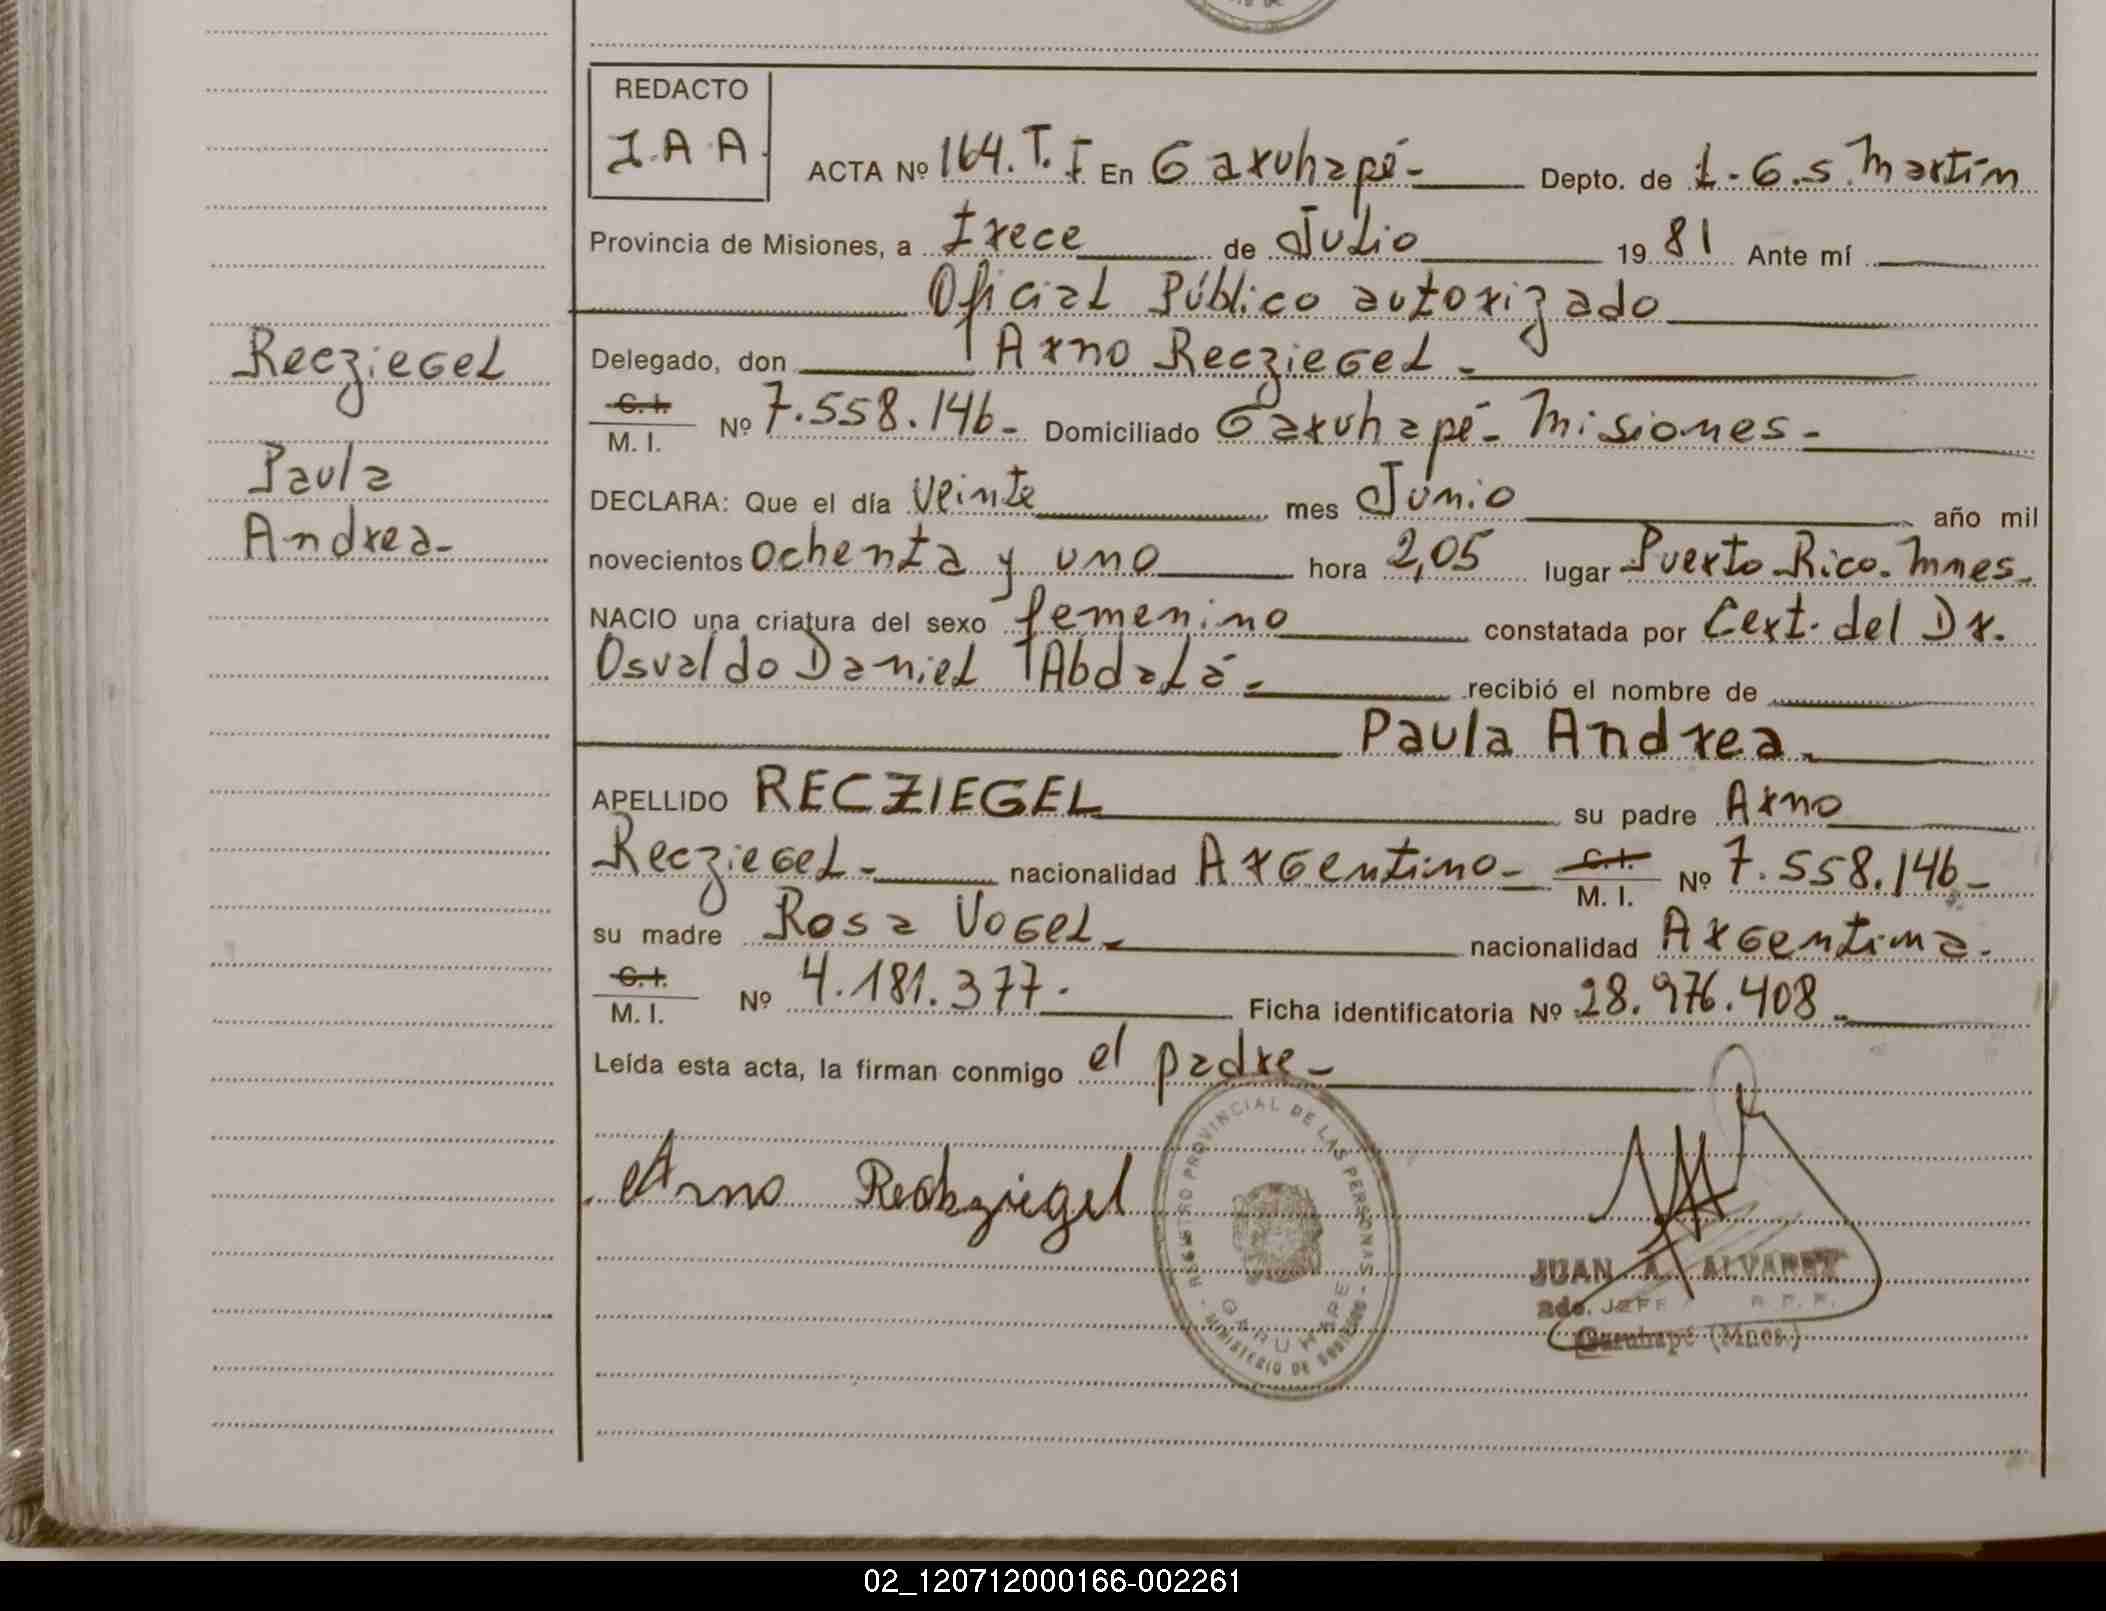 REDACTO
J.A.A.
ACTA Nº 164.T.I En Garuhapé- Depto. de L.G.S. Martín
Provincia de Misiones, a trece de Julio 1981 Ante mí
Oficial Público autorizado
Delegado, don Arno Recziegel-
C.I. M.I. Nº 7.558.146- Domiciliado Garuhapé- Misiones-
DECLARA: Que el día veinte mes Junio año mil
novecientos ochenta y uno hora 2,05 lugar Puerto Rico. Mnes.
NACIO una criatura del sexo femenino constatada por Cert. del Dr.
Osvaldo Daniel Abdalá- recibió el nombre de
Paula Andrea.
APELLIDO RECZIEGEL su padre Arno
Recziegel- nacionalidad Argentino- C.I. M.I. Nº 7.558.146-
su madre Rosa Vogel nacionalidad Argentina.
C.I. M.I. Nº 4.181.377. Ficha identificatoria Nº 28.976.408
Leída esta acta, la firman conmigo el padre-
Recziegel
Paula
Andrea-
Arno Reckziegel
REGISTRO PROVINCIAL DE LAS PERSONAS
GARUHAPE
MINISTERIO DE GOBIERNO
JUAN A. ALVAREZ
2do. JEFE R.P.P.
Garuhapé (Mnes.)
02_120712000166-002261